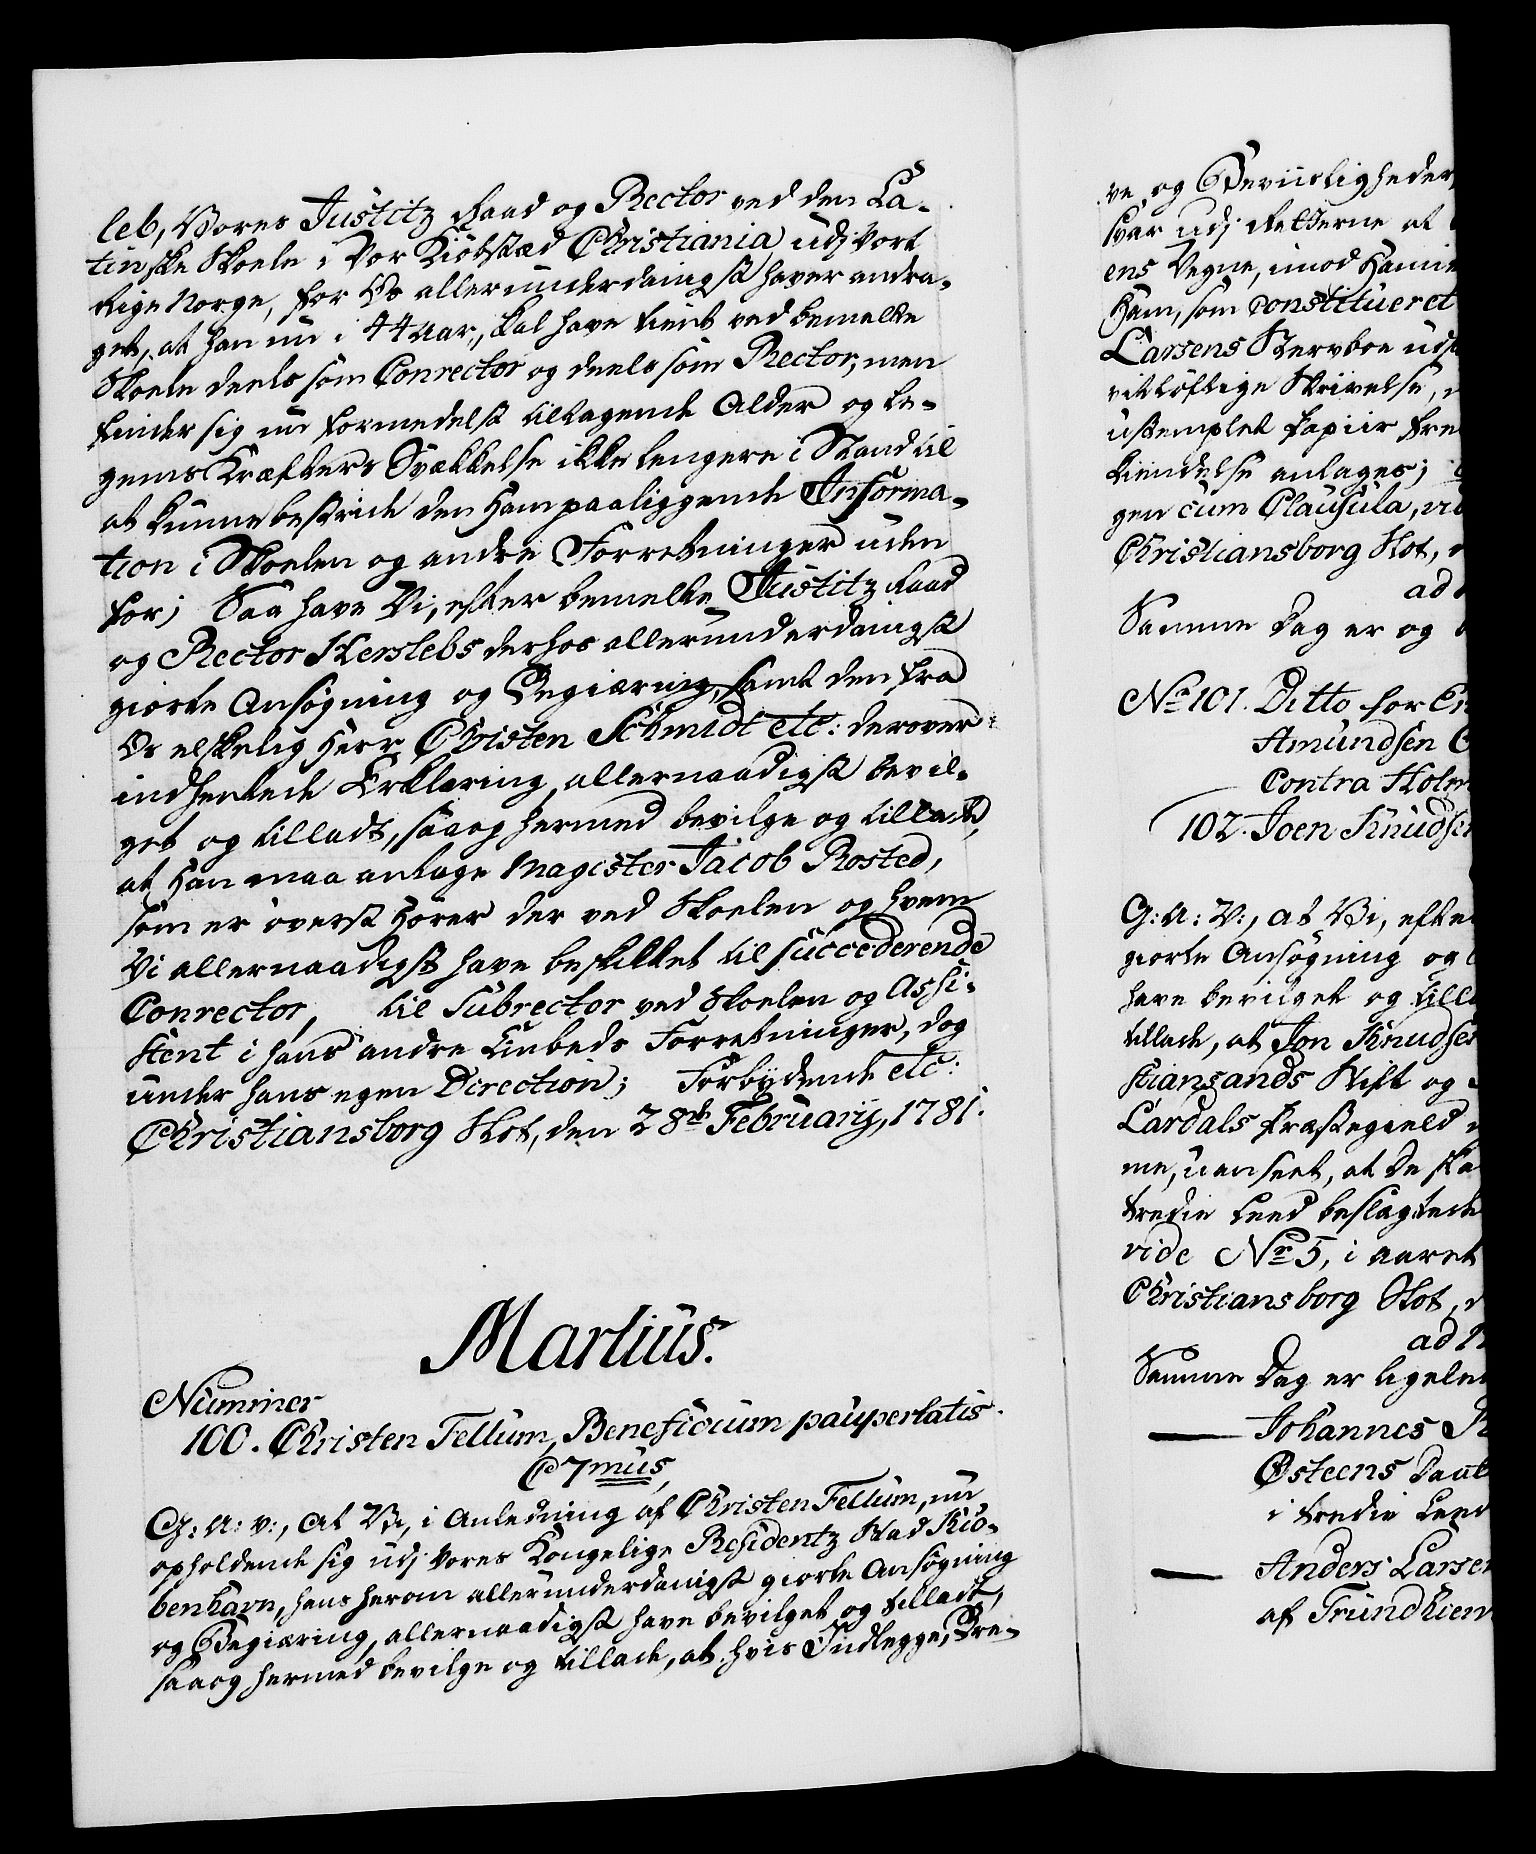 leb, Vores Justitz Raad og Rector ved den La-
tinske Skoele i Vor Kiöbstæd Christiania udj Vort
Rige Norge, for Os allerunderdanigst haver andra-
get, at han nu i 44 Aar, skal have tient ved bemelte
Skoele deels som Conrector og deels som Rector, men
finder sig nu formedelst tiltagende Alder og Le-
gems Kræfters Svækkelse ikke lengere i Stand til
at kunne bestride den Ham paaliggende Informa-
tion i Skoelen og andre Forretninger uden
for; Saa have Vi, efter bemelte Justitz Raad
og Rector Herslebs derhos allerunderdanigst
giorte Ansøgning og Begiæring, samt den fra
Os elskelig Herr Christen Schmidt etc: derover
indhentede Erklæring, allernaadigst bevil-
get og tilladt, saaog hermed bevilge og tillade,
at Han maa antage Magister Jacob Rosted,
som er överst Hörer der ved Skoelen og hvem
Vi allernaadigst have beskikket til succederende
Conrector, til Subrector ved Skoelen og Assi-
stent i hans andre Embeds Forretninger, dog
under hans egen Direction; Forbydende etc:
Christiansborg Slot, den 28de Februarij, 1781.
Martius.
Nummer
100. Christen Tellum, Beneficium paupertatis
C 7mus,
G: A: V:, At Vi, i Anledning af Christen Tellum, nu
opholdende sig udj Vores Kongelige Residentz Stad Kiö-
benhavn, hans herom allerunderdanigst giorte Ansøgning
og Begiæring, allernaadigst have bevilget og tilladt,
saaog hermed bevilge og tillade, at hvis Indlegge, Bre-
ve og Beviisligheder,
svar udj Retterne at
ens Vegne, imod
Ham, som constitueret
Larsens Stervboe
vitløftige Skrivelse,
ustemplet Papiir
kiendelse antages;
gen cum Clausula,
Christiansborg Slot,
ad
Samme Dag er og
No 101. Ditto for
Amundsen
contra
102. Joen Knudsen
G: A: V:, At Vi, efter
giorte Ansøgning og
have bevilget og
tillade, at Jon Knudsen
stiansands Stift og
Lardals Præstegield
me, uanseet, at De
tredie Leed beslægtede
vide No 5, i Aaret
Christiansborg Slot,
ad
Samme Dag er ligeledes
Johannes
Østeens
i tredie Leed
Anders Larsen
af Trundhiem